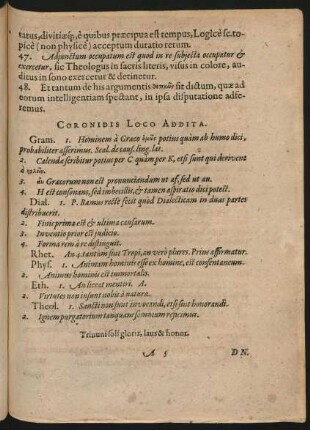 tatus, divitiæsq́, è quibus præcipua est tempus, Logicè sc. to-
picè (non physicè) acceptum duratio rerum.
47. Adjunctum occupatum est quod in re subjecta occupatur &
exercetur. sic Theologus in sacris literis, visus in colore, au-
ditus in sono exercetur & detinetur.
48. Et tantum de his argumentis sit dictum, quæ ad
eorum intelligentiam spectant, in ipsa disputatione adfe-
remus.
CORONIDIS LOCO ADDITA.
Gram. 1. Hominem à Græco potius quàm ab humo dici,
probabiliter asserimus. Scal. de caus. ling. lat.
2. Calendæ scribitur potius per C quàm per K, etsi sunt qui derivent
à
3. Græcorum non est pronunciandum ut af, sed ut au.
4. H est consonans, sed imbecillis, & tamen aspiratio dici potest.
Dial. 1. P. Ramus rectè fecit quòd Dialecticam in duas partes
distribuerit.
2. Finis prima est & ultima causarum.
3. Inventio prior est judicio.
4. Forma rem à re distinguit.
Rhet. An 4. tantum sint Tropi, an verò plures. Prius affirmatur.
Phys. 1. Animam hominis esse ex homine, est consentaneum.
2. Animus hominis est immortalis.
Eth. 1. An liceat mentiri. A.
2. Virtutes non insunt nobis à natura.
Theol. 1. Sancti non sunt invocandi, etsi sint honorandi.
2. Ignem purgatorium tanquam somnium rejicimus.
Trinuni soli gloria, laus & honor.
A 5 DN.